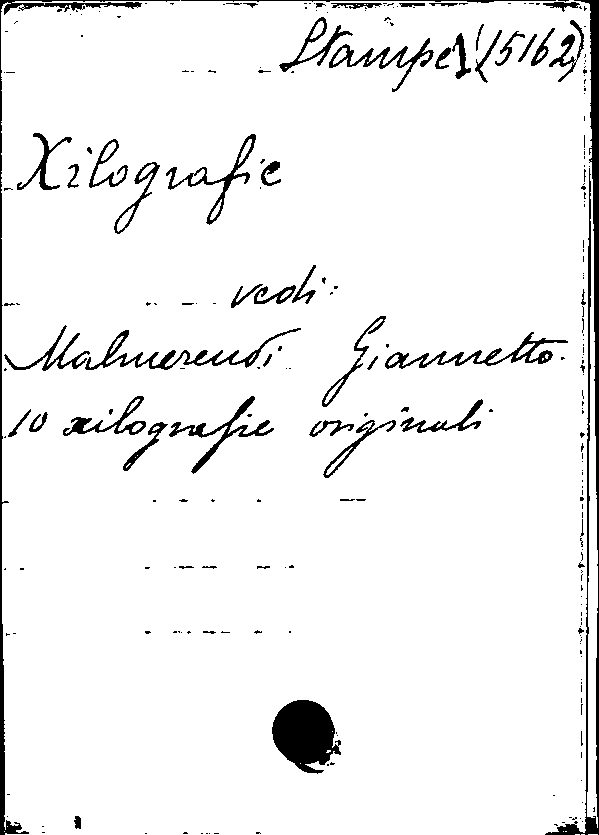 Stampe 1 (5162)
Xilografie
vedi:
Malmerendi Giannetto.
10 xilografie originali